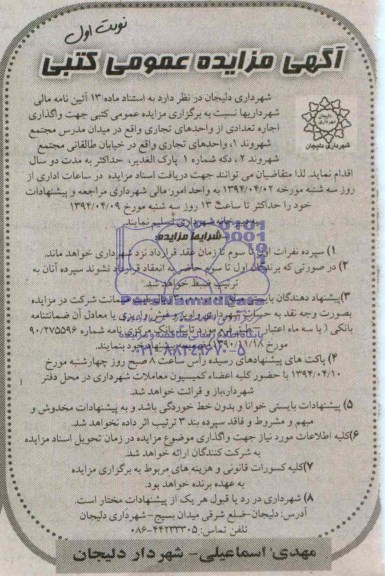 نوبت اول
آگهی مزایده عمومی کتبی
شهرداری دلیجان
شهرداری دلیجان در نظر دارد به استناد ماده ۱۳ آئین نامه مالی
شهرداریها نسبت به برگزاری مزایده عمومی کتبی جهت واگذاری
اجاره تعدادی از واحدهای تجاری واقع در میدان مدرس مجتمع
شهروند ۱، واحدهای تجاری واقع در خیابان طالقانی مجتمع
شهروند ۲، دکه شماره ۱ پارک الغدیر، حداکثر به مدت دو سال
اقدام نمایند. لذا متقاضیان می توانند جهت دریافت اسناد مزایده در ساعات اداری از
روز سه شنبه مورخه ۱۳۹۴/۰۴/۰۲ به واحد امور مالی شهرداری مراجعه و پیشنهادات
خود را حداکثر تا ساعت ۱۳ روز سه شنبه مورخ ۱۳۹۴/۰۴/۰۹
شهرداری تسلیم نمایند.
شرایط مزایده
۱) سپرده نفرات اول تا سوم تا زمان عقد قرارداد نزد شهرداری خواهد ماند.
۲) در صورتی که برندگان اول تا سوم حاضر به انعقاد قرارداد نشوند سپرده آنان به
ترتیب ضبط خواهد شد.
۳) پیشنهاد دهندگان بایستی ضمانت شرکت در مزایده
بصورت وجه نقد به حساب شهرداری واریز و یا معادل آن ضمانتنامه
بانکی (با سه ماه اعتبار بانک مرکزی نامه شماره ۹۰/۲۷۵۵۹۶
مورخ ۱۳۹۰/۱۱/۱۸) نمایند.
۴) پاکت های پیشنهادهای رسیده رأس ساعت ۸ صبح روز چهارشنبه مورخ
۱۳۹۴/۰۴/۱۰ با حضور کلیه اعضاء کمیسیون معاملات شهرداری در محل دفتر
شهردار باز و قرائت خواهد شد.
۵) پیشنهادات بایستی خوانا و بدون خط خوردگی باشد و به پیشنهادات مخدوش و
مبهم و مشروط و فاقد سپرده بند ۳ ترتیب اثر داده نخواهد شد.
۶) کلیه اطلاعات مورد نیاز جهت واگذاری موضوع مزایده در زمان تحویل اسناد مزایده
به شرکت کنندگان ارائه خواهد شد.
۷) کلیه کسورات قانونی و هزینه های مربوط به برگزاری مزایده
به عهده برنده خواهد بود.
۸) شهرداری در رد یا قبول هر یک از پیشنهادات مختار است.
آدرس: دلیجان-ضلع شرقی میدان بسیج-شهرداری دلیجان
تلفن تماس: ۰۸۶-۴۴۲۳۳۳۰۵
مهدی اسماعیلی - شهردار دلیجان
۰۲۱-۸۸۳۴۹۶۷۰-۵